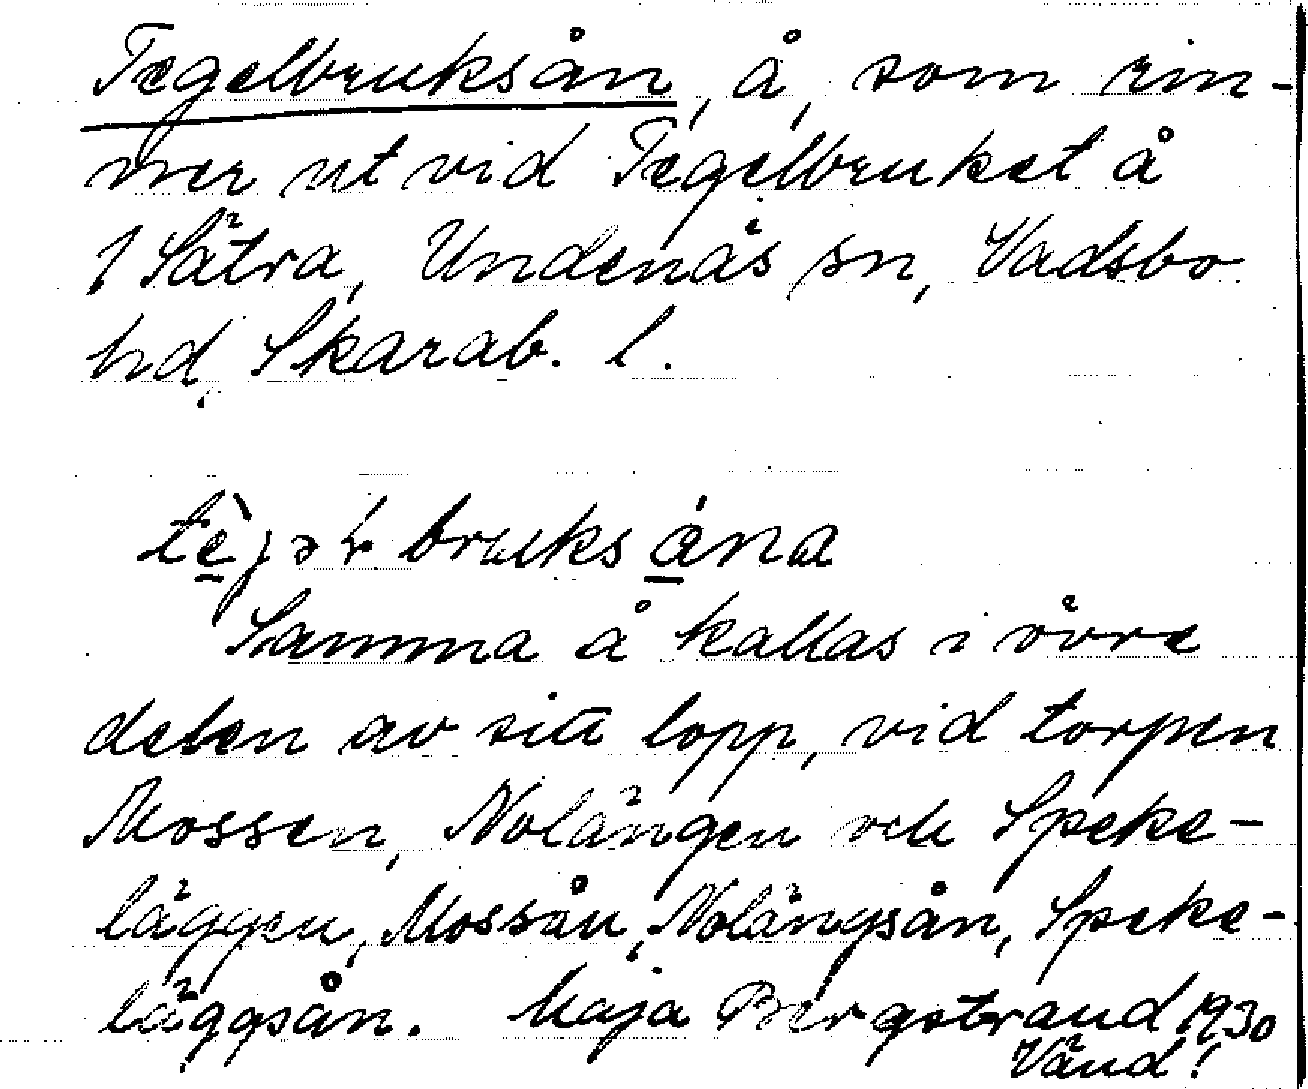 Tegelbruksån, å, som rin-
ner ut vid Tegelbruket å
1 Sätra, Undenäs sn, Vadsbo
hd, Skarab. l.
bruks
Samma å kallas i övre
delen av sitt lopp, vid torpen
Mossen, Nolängen och Speke-
läggen, Mossån, Nolängsån, Speke-
läggsån. Maja Bergstrand 1930
Vänd!